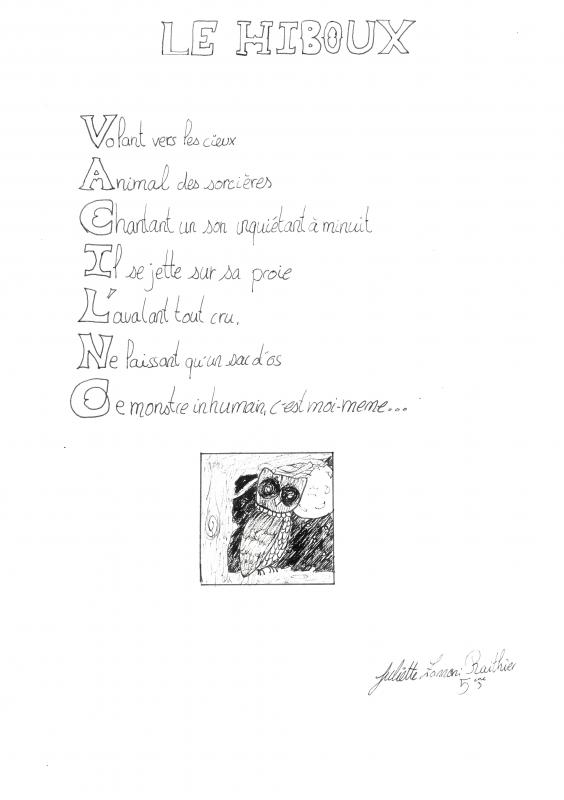 LE HIBOUX
Volant vers les cieux
Animal des sorcières
Chantant un son inquiétant à minuit
Il se jette sur sa proie
L'avalant tout cru.
Ne laissant qu'un sac d'os
Ce monstre inhumain, c'est moi-meme...
Juliette
5ème